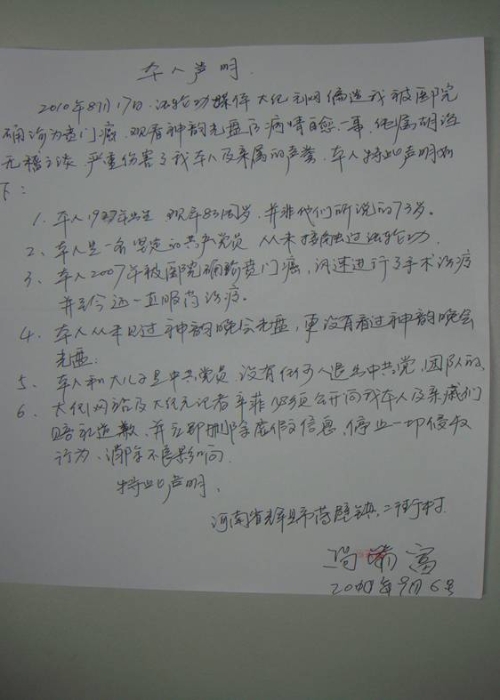 本人声明
2010年8月17日,法轮功媒体大纪元网编造我被医院
确诊为贲门癌,观看神韵光盘后病情自愈一事,纯属胡说
无稽之谈,严重伤害了我本人及亲属的声誉,本人特此声明如
下:
1、本人1927年出生 现年83周岁,并非他们所说的73岁。
2、本人是一名坚定的共产党员 从未接触过法轮功.
3、本人2007年被医院确诊贲门癌,迅速进行了手术治疗
并至今还一直服药治疗。
4、本人从未见过神韵晚会光盘,更没有看过神韵晚会
光盘;
5、本人和大儿子是中共党员,没有任何人退出中共党、团队的,
6、大纪网站及大纪元记者辛菲必须公开向我本人及亲戚们
赔礼道歉,并立即删除虚假信息,停止一切侵权
行为,消除不良影响.
特此声明.
河南省辉县市薄壁镇,二街村
2010年9月6号